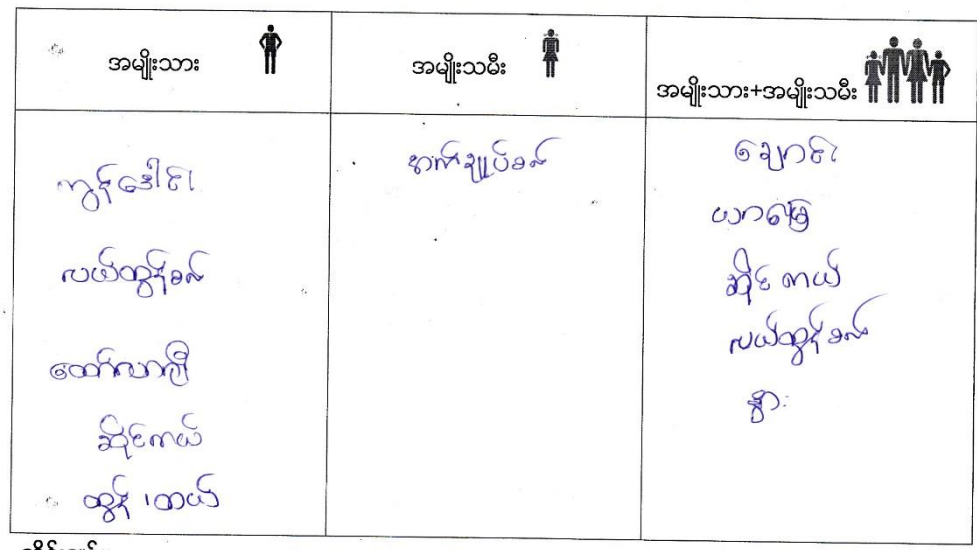 အမျိုးသား
အမျိုးသမီး
အမျိုးသား+အမျိုးသမီး
ကွန်ဒေါင်း
လယ်ထွန်စက်
ထော်လာဂျီ
ဆိုင်ကယ်
ထွန် ၊ တယ်
စက်ချုပ်စက်
ချောင်း
ယာမြေ
ဆိုင်ကယ်
လယ်ထွန်စက်
နွား